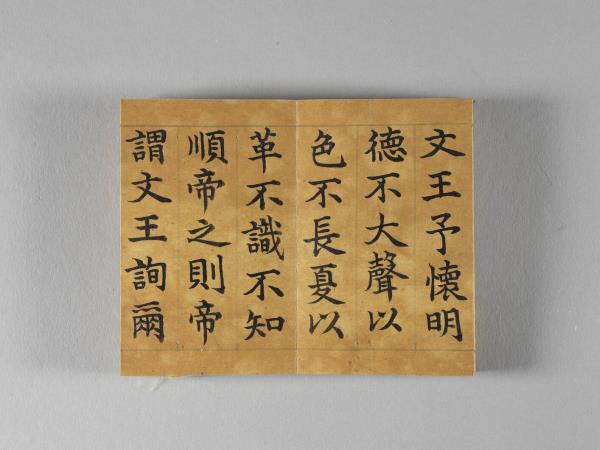 文王予懷明
德不大聲以
色不長夏以
革不識不知
順帝之則帝
謂文王詢爾